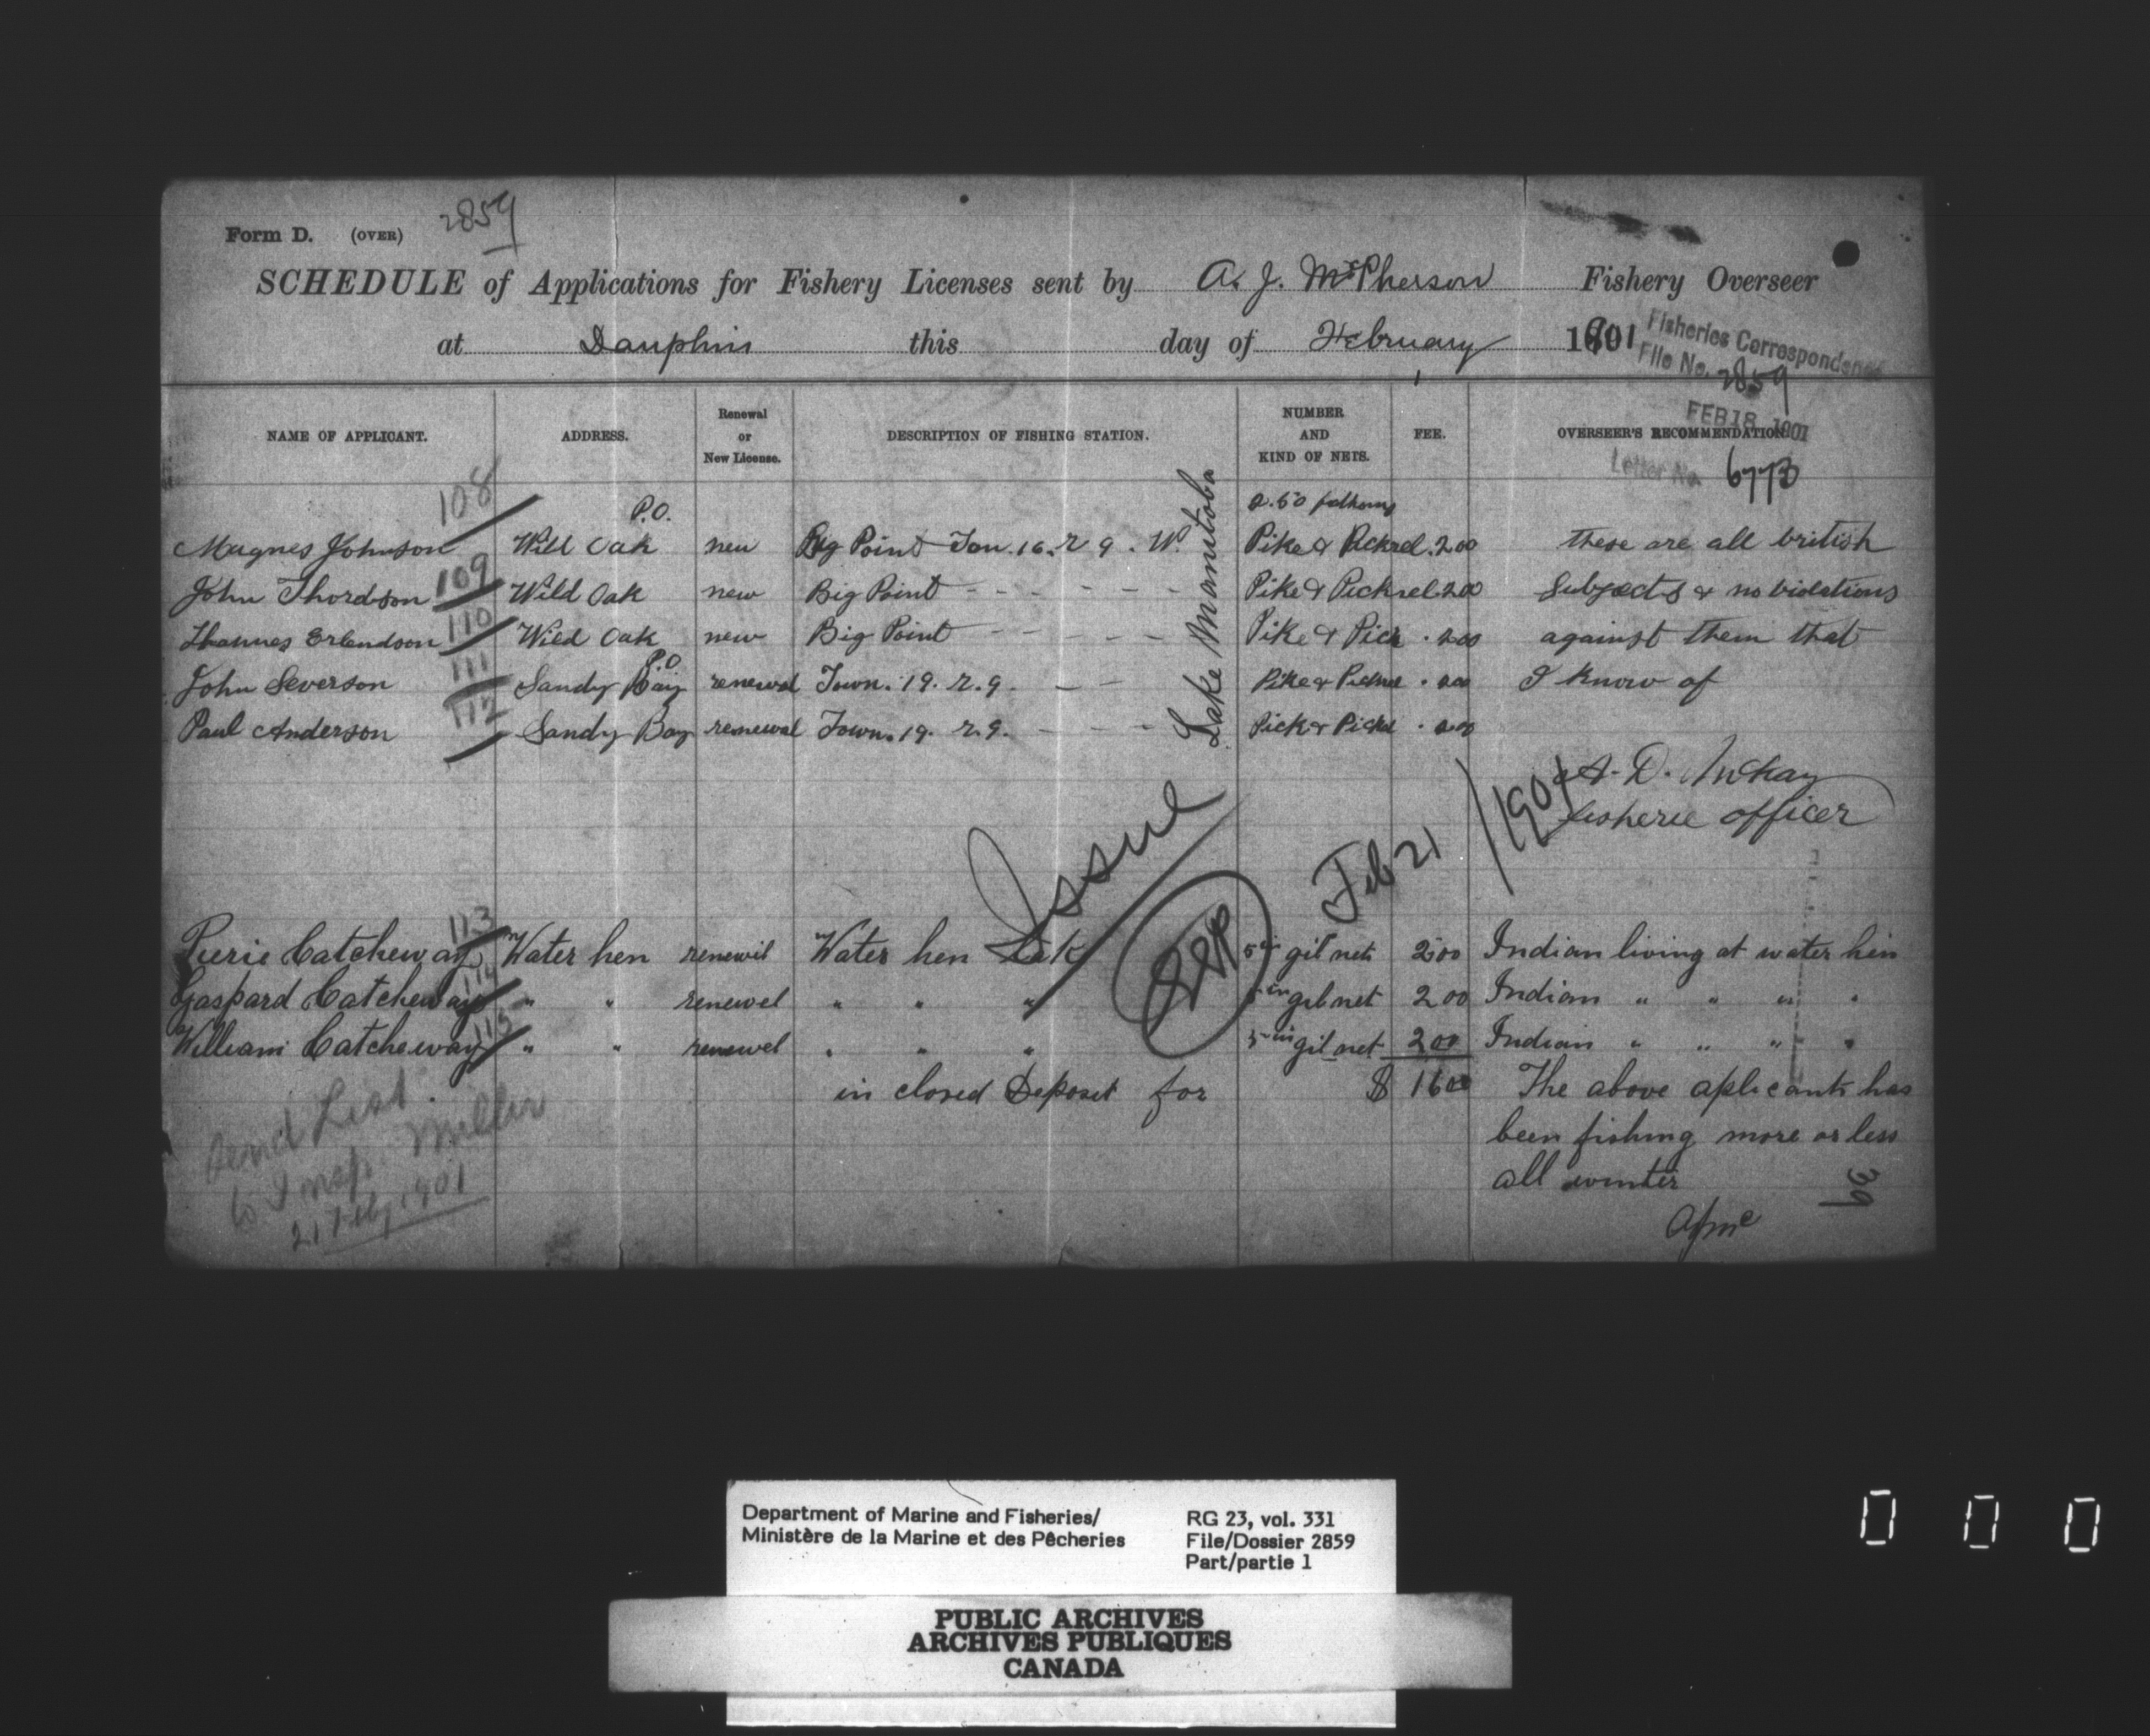 Form D. (OVER) 2859
SCHEDULE of Applications for Fishery Licenses sent by A. J. McPherson Fishery Overseer
at Dauphin this day of February 1901
Fisheries Correspondence
File No. 2859
FEB 18 1901
Letter No. 6773
NAME OF APPLICANT. ADDRESS. Renewal or New License. DESCRIPTION OF FISHING STATION. NUMBER AND KIND OF NETS. FEE. OVERSEER'S RECOMMENDATION
Lake Manitoba
108 P.O. 2.50 fathoms
Magnes Johnson Wild Oak new Big Point Ton. 16. r 9. W. Pike & Pickrel. 2 00 these are all british
109
John Thordson Wild Oak new Big Point - - - - - - Pike & Pickrel 2 00 Subjects & no violations
110
Erlendson Wild Oak new Big Point - - - - - Pike & Pick . 2 00 against them that
111 P.O
John Severson Sandy Bay renewal Town. 19. r. 9. - - Pike & . 2 00 I know of
112
Paul Anderson Sandy Bay renewal Town. 19. r. 9. - - - Pick & . 2 00
A. D. McKay
fisherie officer
Issue
Feb 21 / 1901
113
Pierie Catcheway Water hen renewil Water hen Lak 5 in gil net 2 00 Indian living at water hen
114
Gaspard Catcheway " " renewel " " " 5 in gil net 2 00 Indian " " " "
115
William Catcheway " " renewel " " " 5 in gil net 2 00 Indian " " " "
in closed Deposit for $ 16 00 The above aplicants has
been fishing more or less
all winter
AJMc
39
Send List
to Insp. Miller
21 Feby 1901
Department of Marine and Fisheries/
Ministère de la Marine et des Pêcheries
RG 23, vol. 331
File/Dossier 2859
Part/partie 1
PUBLIC ARCHIVES
ARCHIVES PUBLIQUES
CANADA
0 0 0